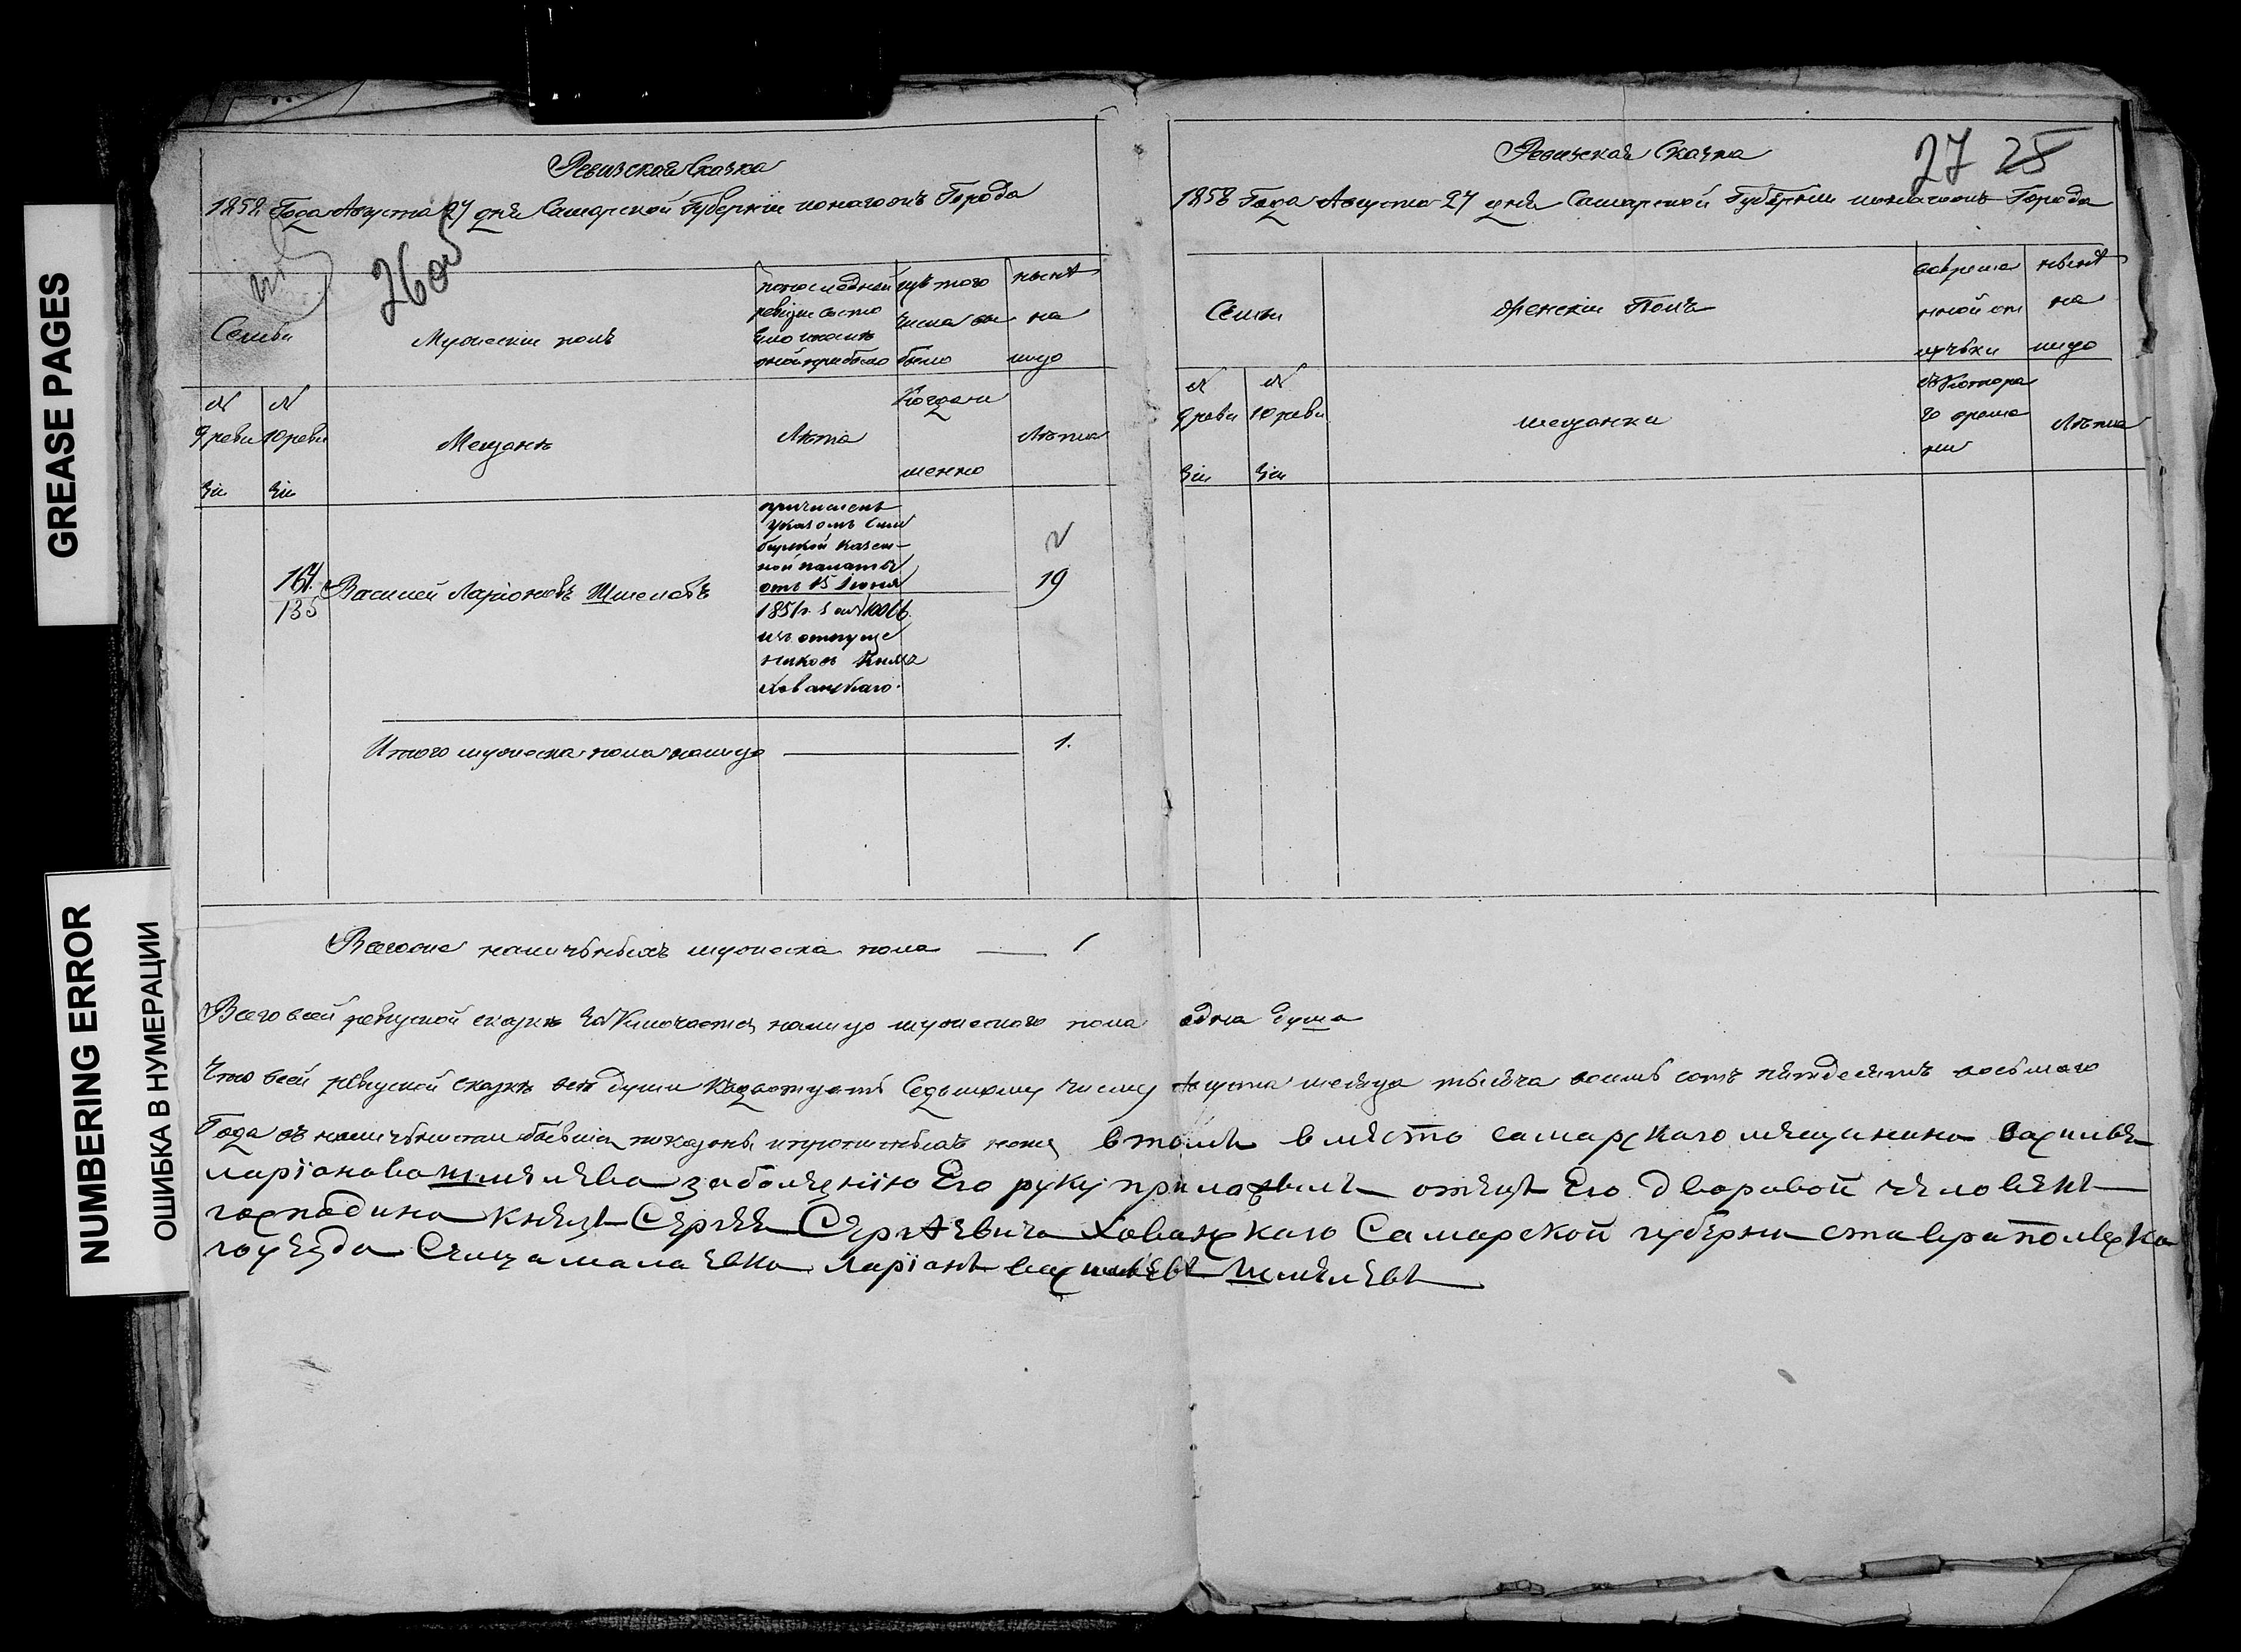 GREASE PAGES
NUMBERING ERROR
ОШИБКА В НУМЕРАЦИИ
Ревизская Сказка
1858 Года Августа 27 дня Самарской Губернiи тогожъ Города
26 об
Семьи
Мужескiй полъ
по последней ревизiи состояло и после оной прибыло
изъ того числа выбыло
ныне на лицо
№ 9 ревизiи
№ 10 ревизiи
Мещане
Лета
Когда именно
Лета
164
135
Василей Ларiоновъ Шмелевъ
причисленъ
указомъ Сим
бирской казен-
ной палаты
отъ 15 Iюня
1851 г.
изъ отпуще
никовъ Князя
Хованскаго.
19
Итого мужеска пола налицо
1.
Ревизская Сказка
27 25
1858 Года Августа 27 дня Самарской Губернiи тогожъ Города
Семьи
Женскiй Полъ
во временной отлучки
ныне на лицо
№ 9 ревизiи
№ 10 ревизiи
мещанки
съ Котораго времени
Лета
Всего же наличныхъ мужеска пола 1
Всего в сей ревиской сказке заКлючается налицо мужеского пола одна душа
Что в сей ревиской сказке все души Ка двадцать Седьмому числу Августа месяца тысяча восемь сотъ пятдесятъ восьмаго
Года въ наличности бывшiя показаны и прописныхъ нетъ в томъ вместо самарскаго мещанина василья
ларiонова шмелева за болезнiю Его руку приложилъ отецъ Его дворовой человекъ
господина князя Сергея Сергеевича Хованскаго Самарской губерни ставрапольска
го уезда Сельца малаевка Ларiонъ васильевъ шмелевъ